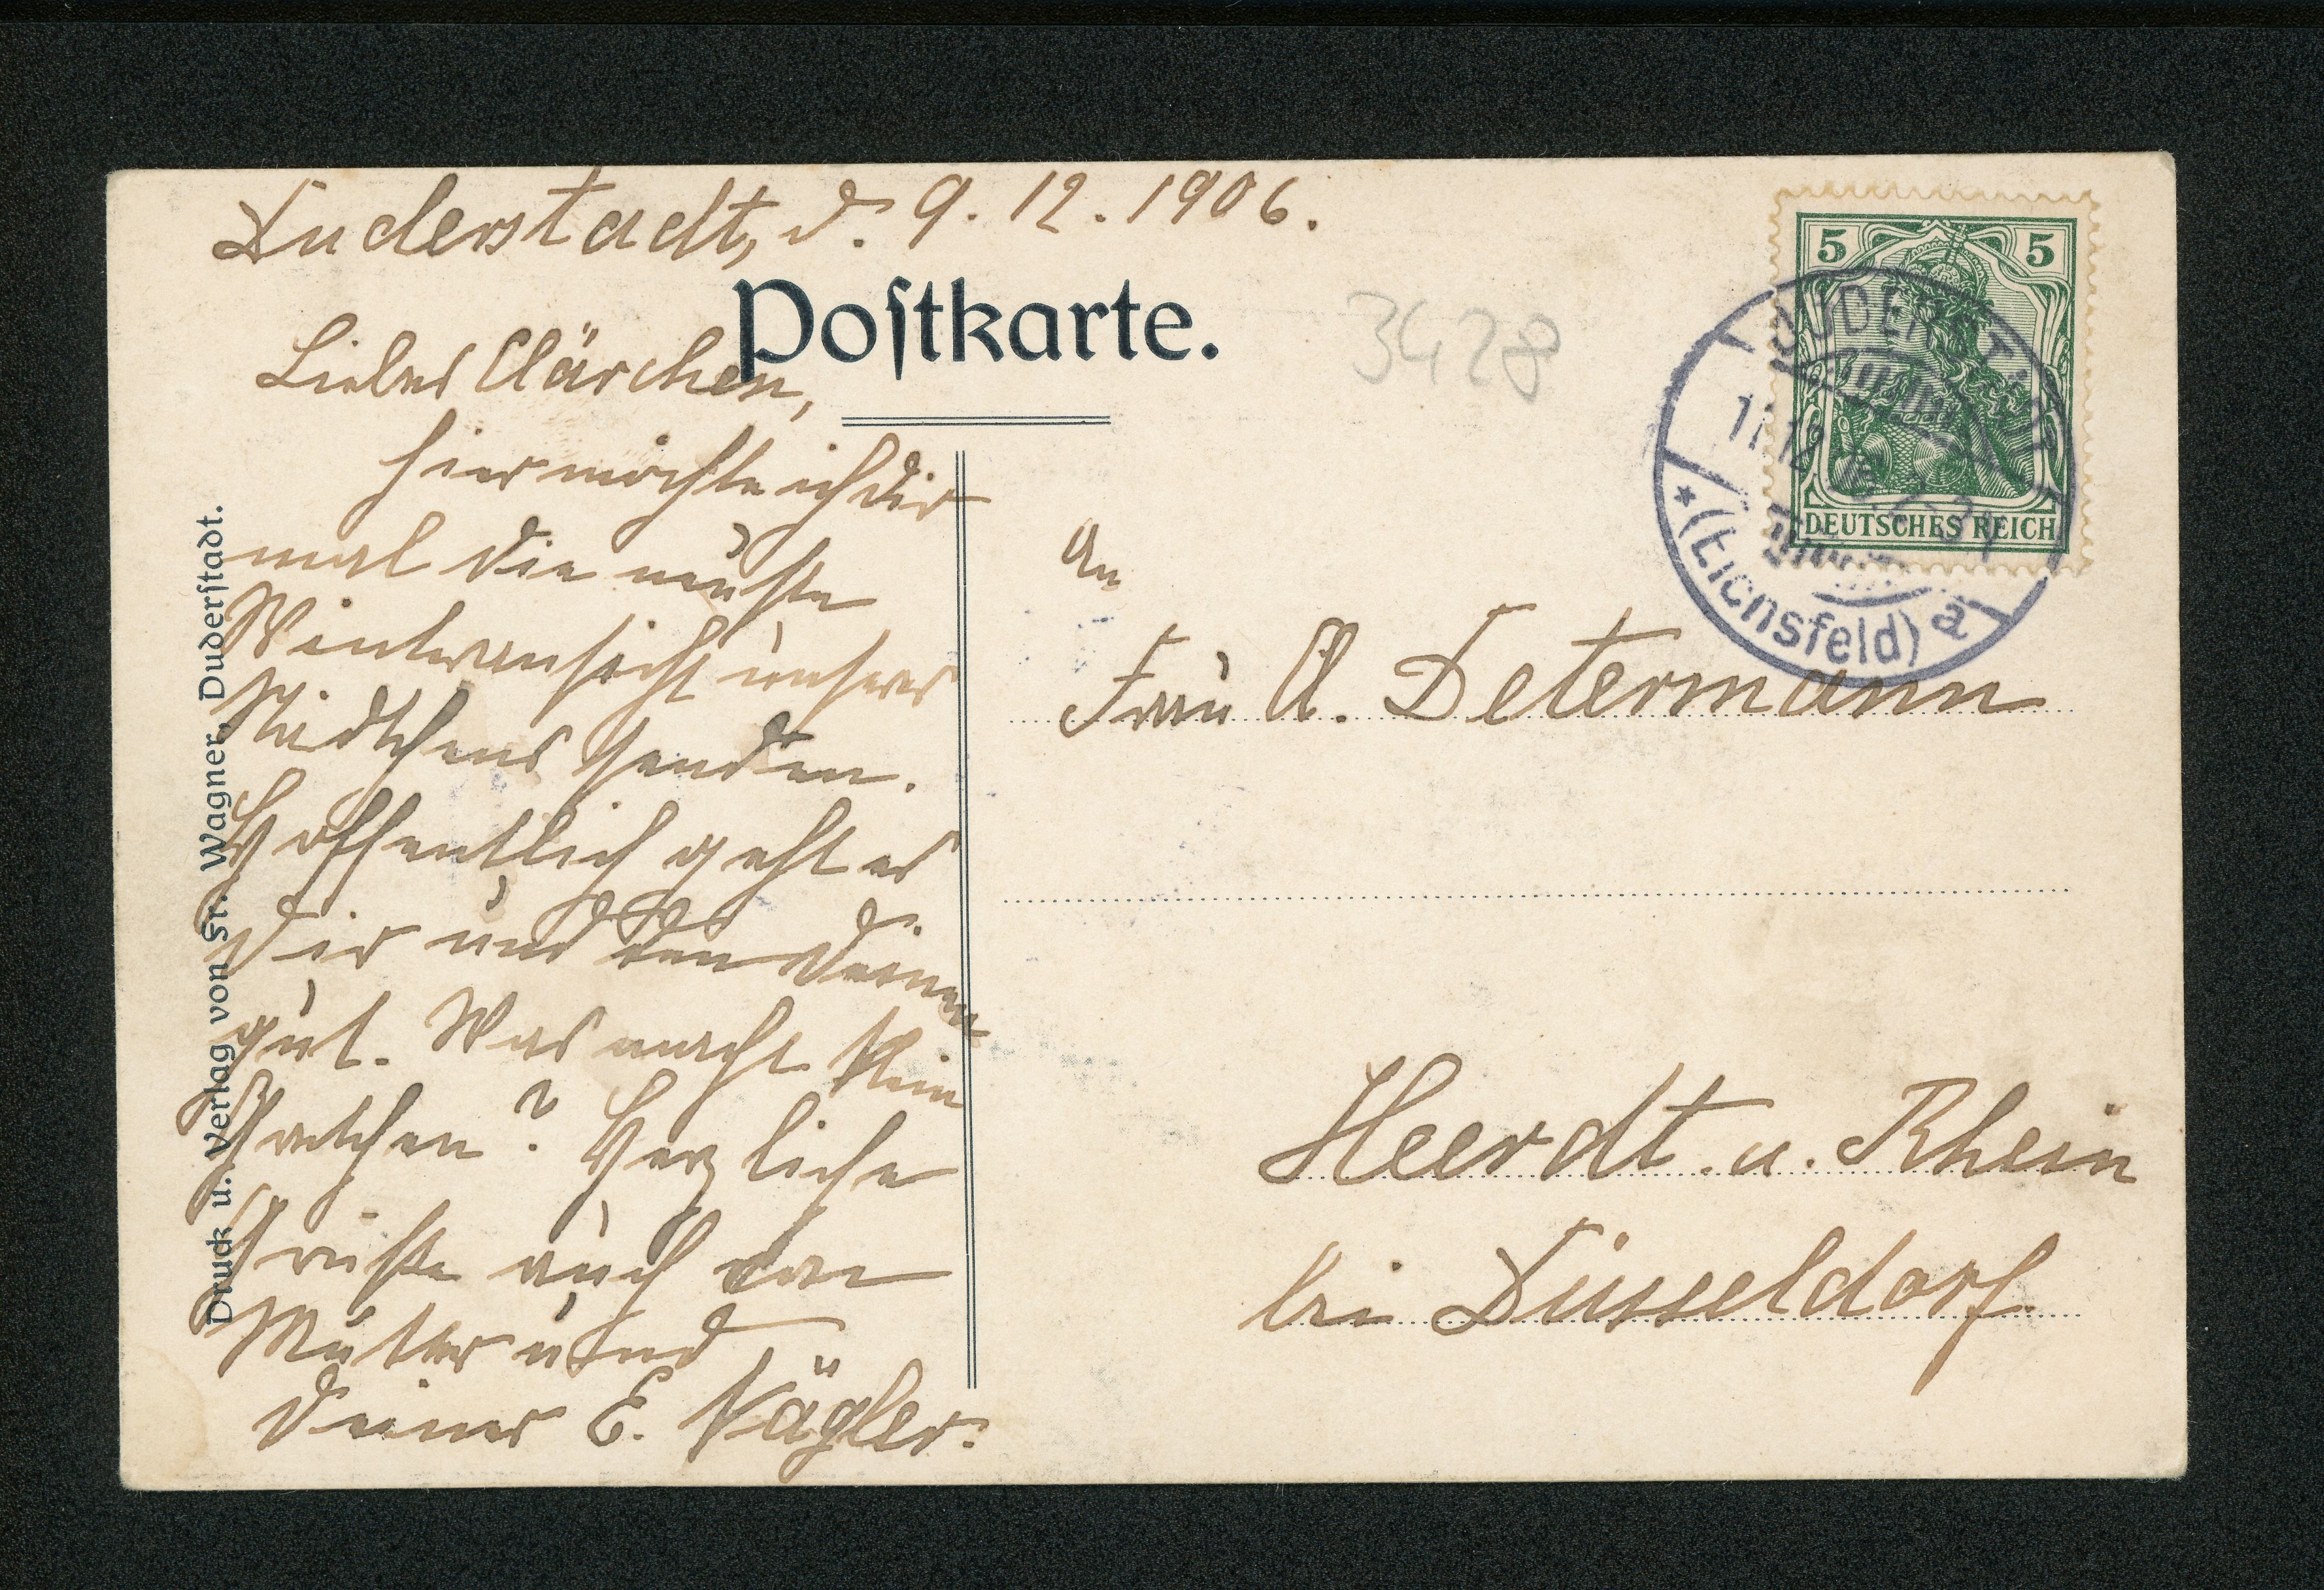 Duderstadt, d. 9. 12. 1906.
Postkarte.
3428
Liebes Clärchen,
hier möchte ich Dir
mal die neuste
Winteransicht unsers
Städtchens senden.
Hoffentlich geht es
Dir und den Deinen
gut. Was macht Klein
Gretchen? Herzliche
Grüße auch von
Mutter und
Deiner E. Nägler.
Druck u. Verlag von Fr. Wagner, Duderſtadt.
5 5
DEUTSCHES REICH
DUDERSTADT
(Eichsfeld) a
An
Frau A. Determann
Heerdt. a. Rhein
bei Düsseldorf.